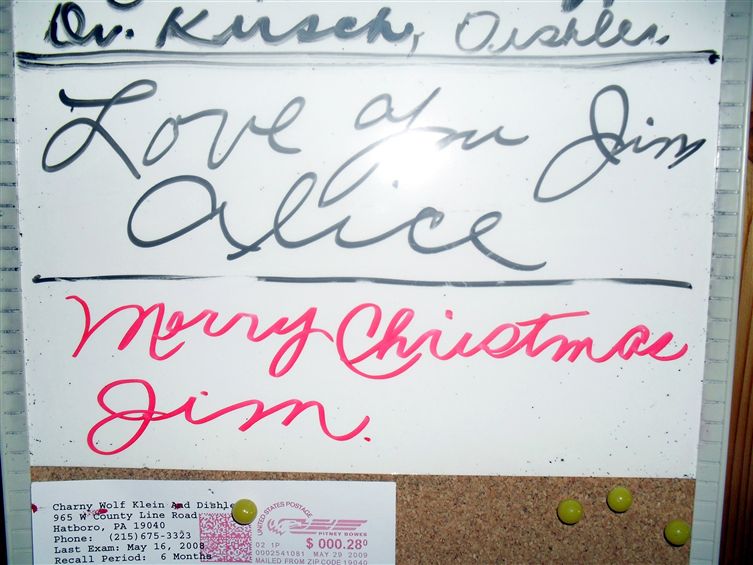 Dr. Kirsch, Dishler.
Love you Jim
Alice
Merry Christmas
Jim.
Charny Wolf Klein And Dishle
965 W County Line Road
Hatboro, PA 19040
Phone: (215)675-3323
Last Exam: May 16, 2008
Recall Period: 6 Months
UNITED STATES POSTAGE
PITNEY BOWES
02 1P $ 000.28⁰
0002541081 MAY 29 2009
MAILED FROM ZIP CODE 19040